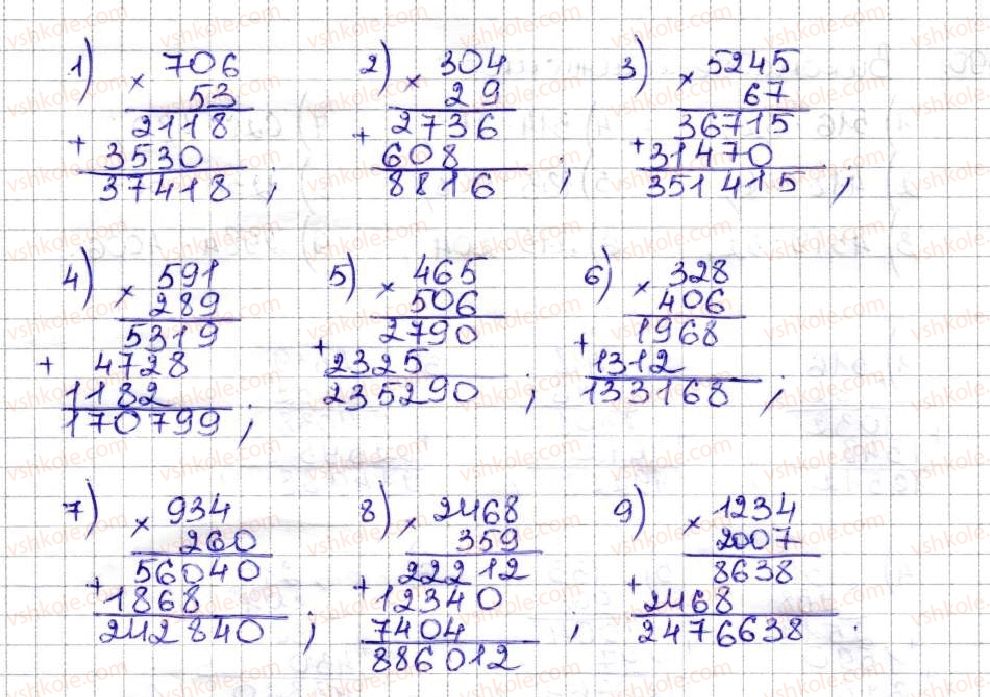 1) × 706
53
2118
+ 3530
37418 ;
2) × 304
29
2736
+ 608
8816 ;
3) × 5245
67
36715
+ 31470
351415 ;
4) × 591
289
5319
+ 4728
1182
170799 ;
5) × 465
506
2790
+ 2325
235290 ;
6) × 328
406
1968
+ 1312
133168 ;
7) × 934
260
56040
+ 1868
242840 ;
8) × 2468
359
22212
+ 12340
7404
886012 ;
9) × 1234
2007
8638
+ 2468
2476638 .
vshkole.com